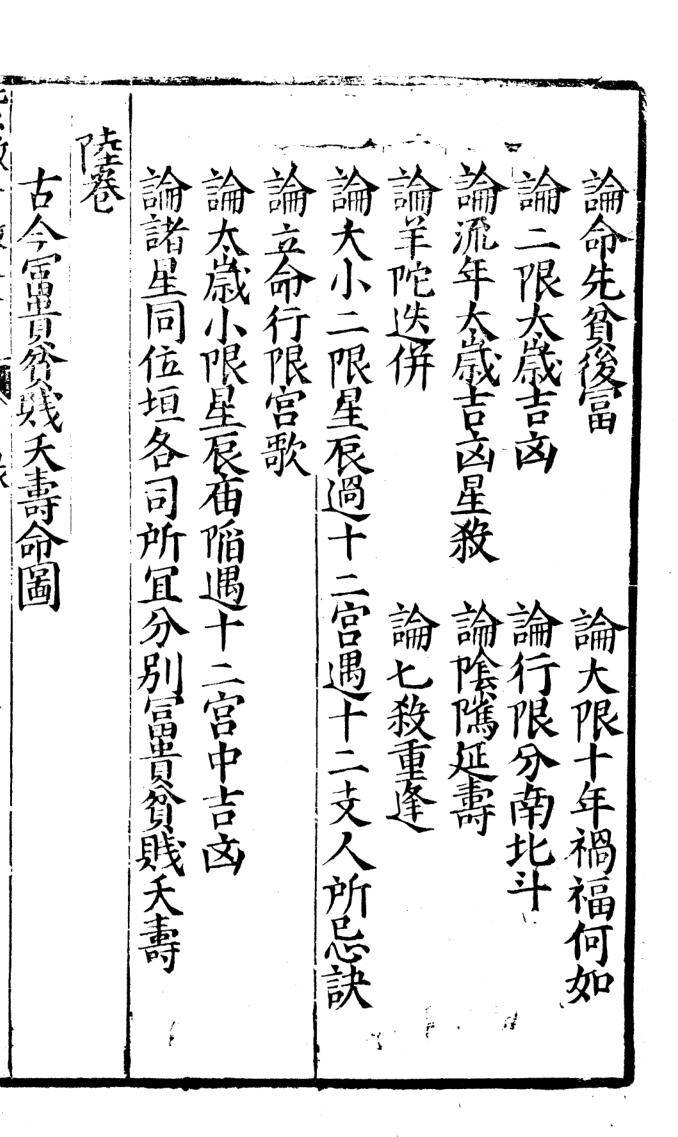 論命先貧後冨　論大限十年禍福何如
論二限太歲吉凶　論行限分南北斗
論流年太歲吉凶星殺　論隂隲延壽
論羊陀迭併　論七殺重逢
論大小二限星辰過十二宮遇十二支人所忌訣
論立命行限宮歌
論太歲小限星辰庙陷遇十二宮中吉凶
論諸星同位垣各司所冝分別冨貴貧賤夭壽
陸卷
古今冨貴貧賤夭壽命圖